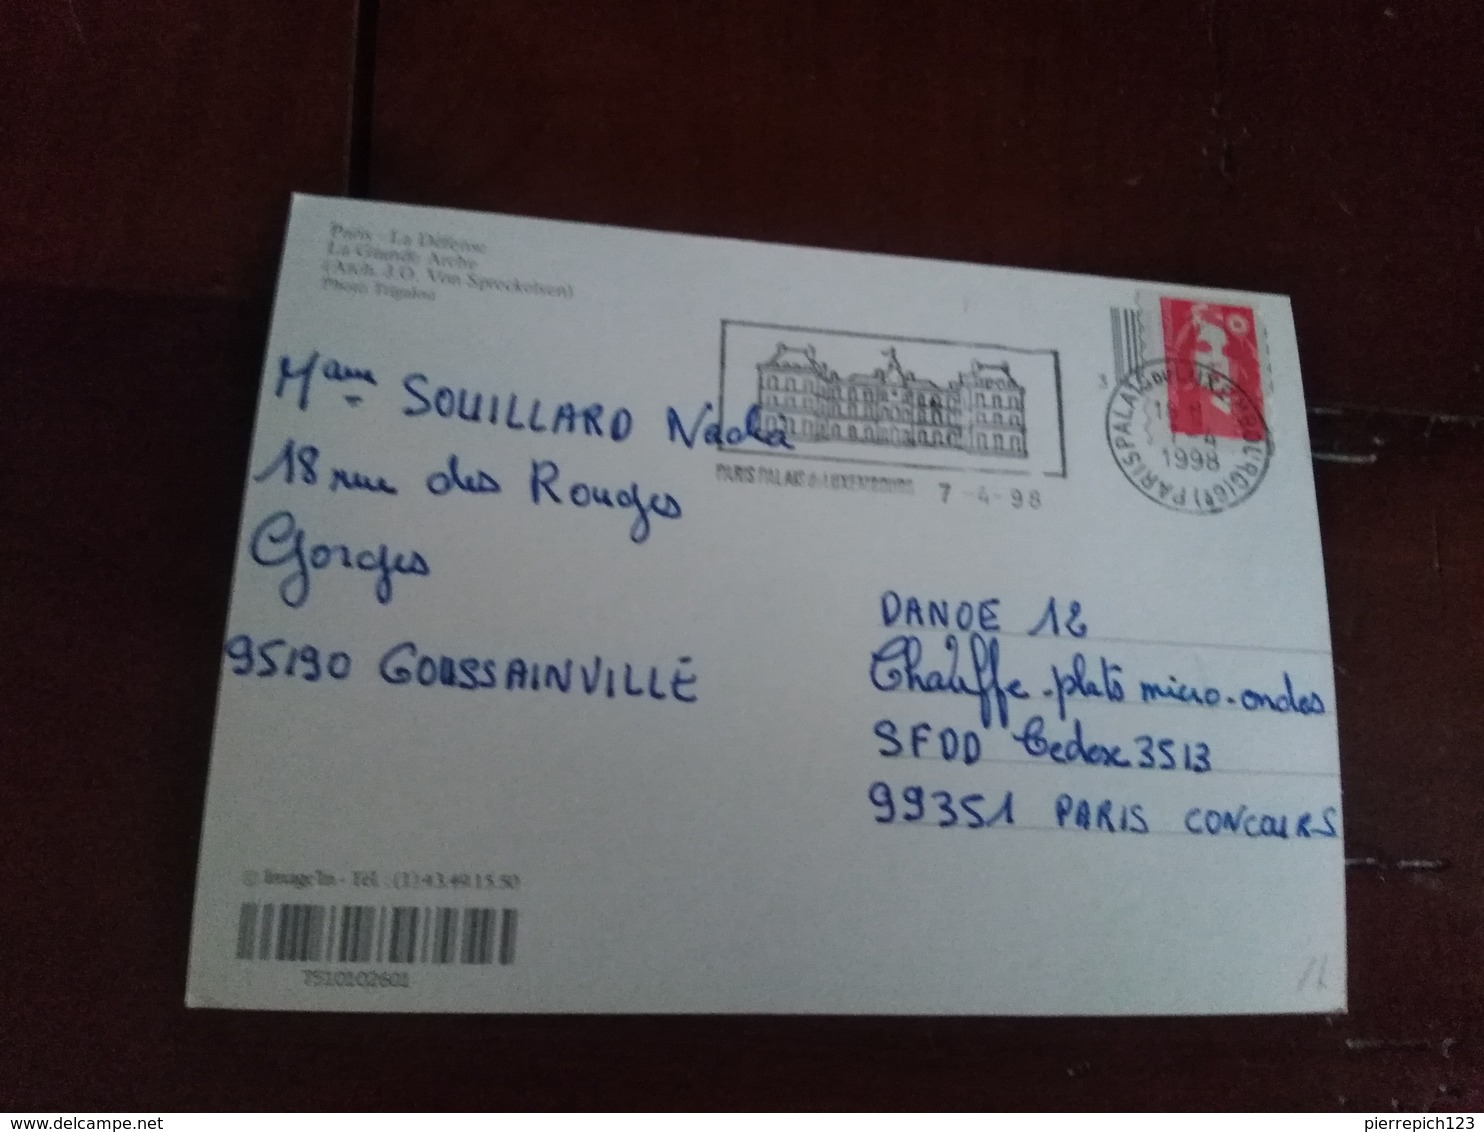 Paris - La Défense
La Grande Arche
(Arch. J.O. Von Spreckelsen)
Photo Trigalou
Mame SOUILLARD Nadia
18 rue des Rouges
Gorges
95190 GOUSSAINVILLE
PARIS PALAIS du LUXEMBOURG 7-4-98
3
PARIS PALAIS DU LUXEMBOURG (6e)
1998
DANOE 12
Chauffe-plats micro-ondes
SFDD Cedex 3513
99351 PARIS CONCOURS
© Image'In - Tél : (1) 43.49.15.50
7510102601
pierrepich123